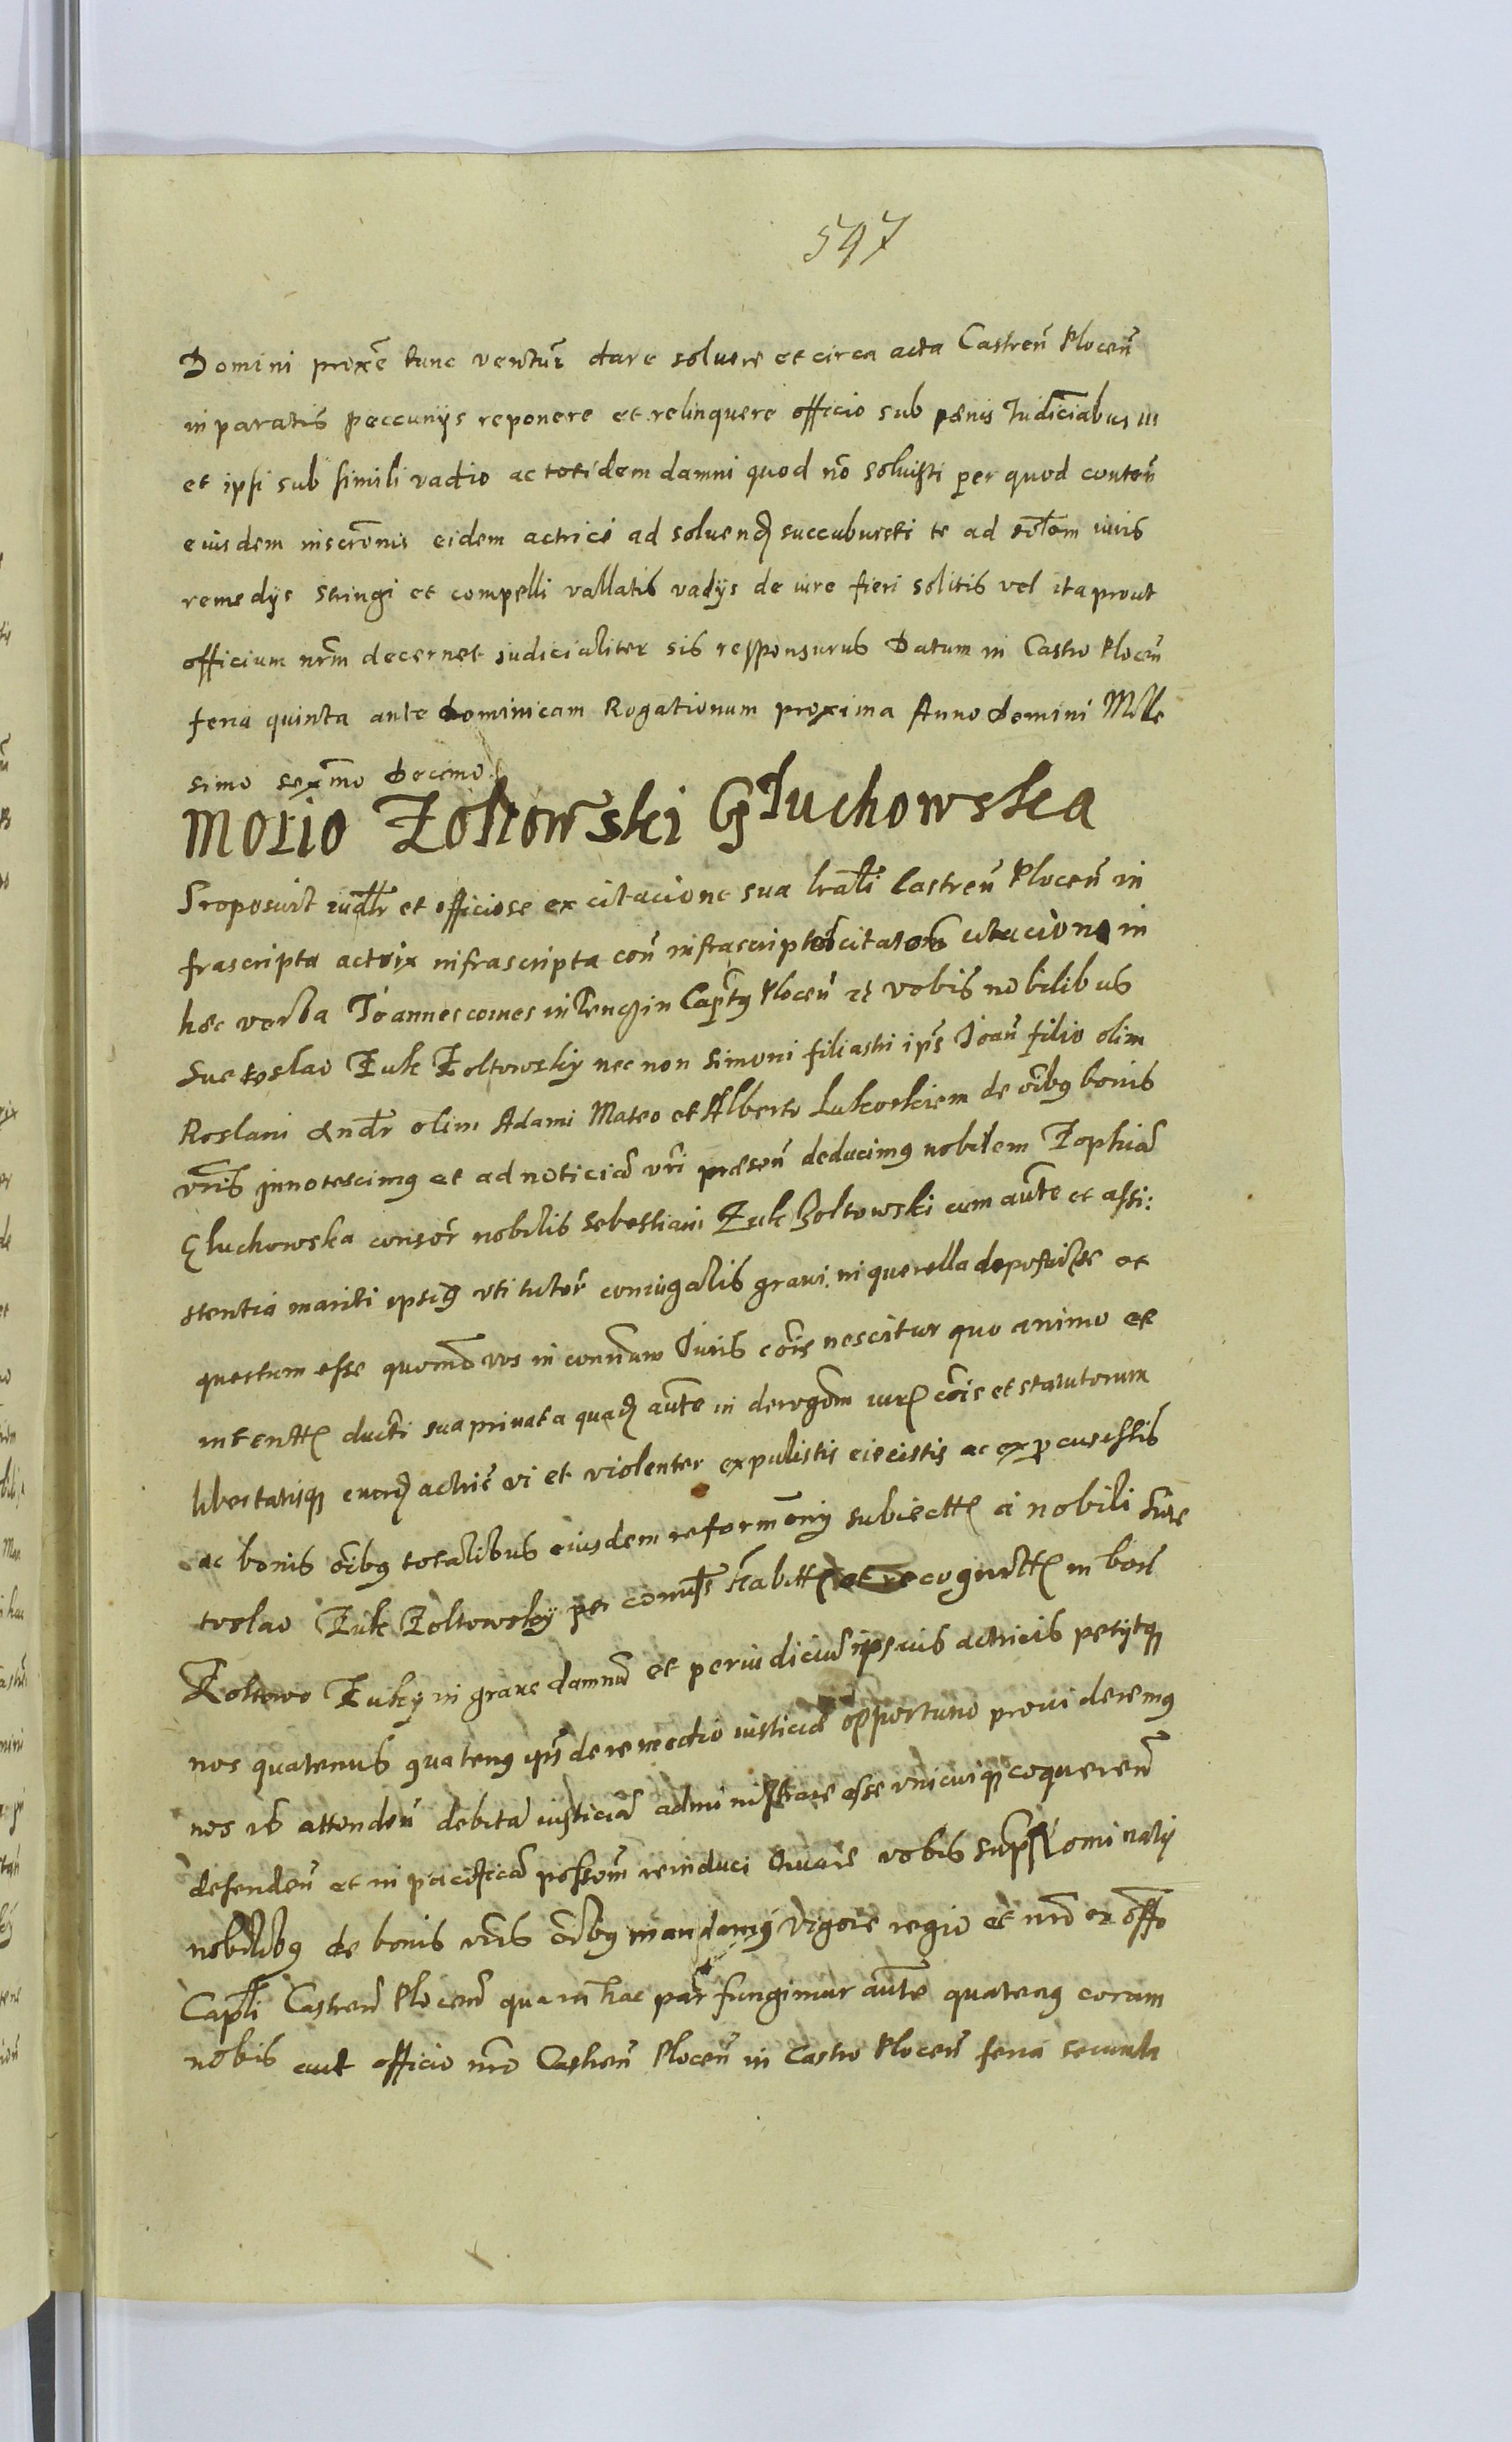 597
Domini proxē tunc ventur̄ dare soluere et circa acta Castreñ Ploceñ
in paratis peccunijs reponere et relinquere officio sub pœnis Iudiciabus in
et ipsi sub simili vadio ac totidem damni quod nō soluisti per quod conteñ
eiusdem inscrōnis eidem actrici ad soluend succubuisti te ad sōlem iuris
remedijs stringi et compelli vallatis vadijs de iure fieri solitis vel ita prout
officium nr̄m decernet judicialiter sis responsurus Datum in Castro Ploceñ
feria quinta ante dominicam Rogationum proxima Anno Domini Mille
simo sex̄mo Decimo
Motio Zoltowski Głuchowska
Proposuit iudlr et officiose ex citacione sua lrali Castreñ Ploceñ in
frascripta actrix infrascripta coñ infrascriptos citatos citacione in
hæc verba Ioannes comes in Tenczin Capts Ploceñ rz vobis nobilibus
Suetoslao Zuk Zoltowsky nec non Simoni filiastri ips Ioañ filio olim
Roslani Andr olim Adami Mateo et Alberto Lukoskiem de oibus bonis
vr̄is innotescimus et ad noticiā vr̄i præseñ deducimus nobilem Zophiā
Głuchowska consor̄ nobilis Sebestiani Zuk Zoltowski cum aūte et assi:
stentia mariti ipsius vti tutor̄ coniugalis graui in querella deposuisse et
questum esse quomō vos in connum Iuris cōis nescitur quo animo et
intentt ducti sua priuata quad aūte in derogōm iur cōis et statutorum
libertatisq euord actric̄ vi et violenter expulistis eiecistis ac expercussistis
ac bonis oībus totalibus eiusdem reformōnij subiectt a nobili Sue
toslao Zuk Zoltowsky per comiss habitt et recognitt in bon̄
Zoltowo Zuky in graue damnū et periudiciū ipsius actricis petijtq
nos quatenus quatenus ips de remedio iusticiæ opportuno prouideremus
nos v̄o attendeñ debitā iusticiā administrare esse vnicuiq coquereñ
defendeñ et in pacificā possōm reinduci Quare vobis supranominatij
nobilibus de bonis vr̄is oībus mandamus vigore regio et nr̄o ex offo
Capli Castreñ Ploceñ qua in hac par̄ fungimur aūte quatenus coram
nobis aut officio nr̄o Castreñ Ploceñ in Castro Ploceñ feria secunda